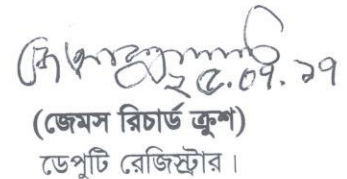 ২৫.০৭.১৭
(জেমস রিচার্ড ক্রুশ)
ডেপুটি রেজিস্ট্রার।